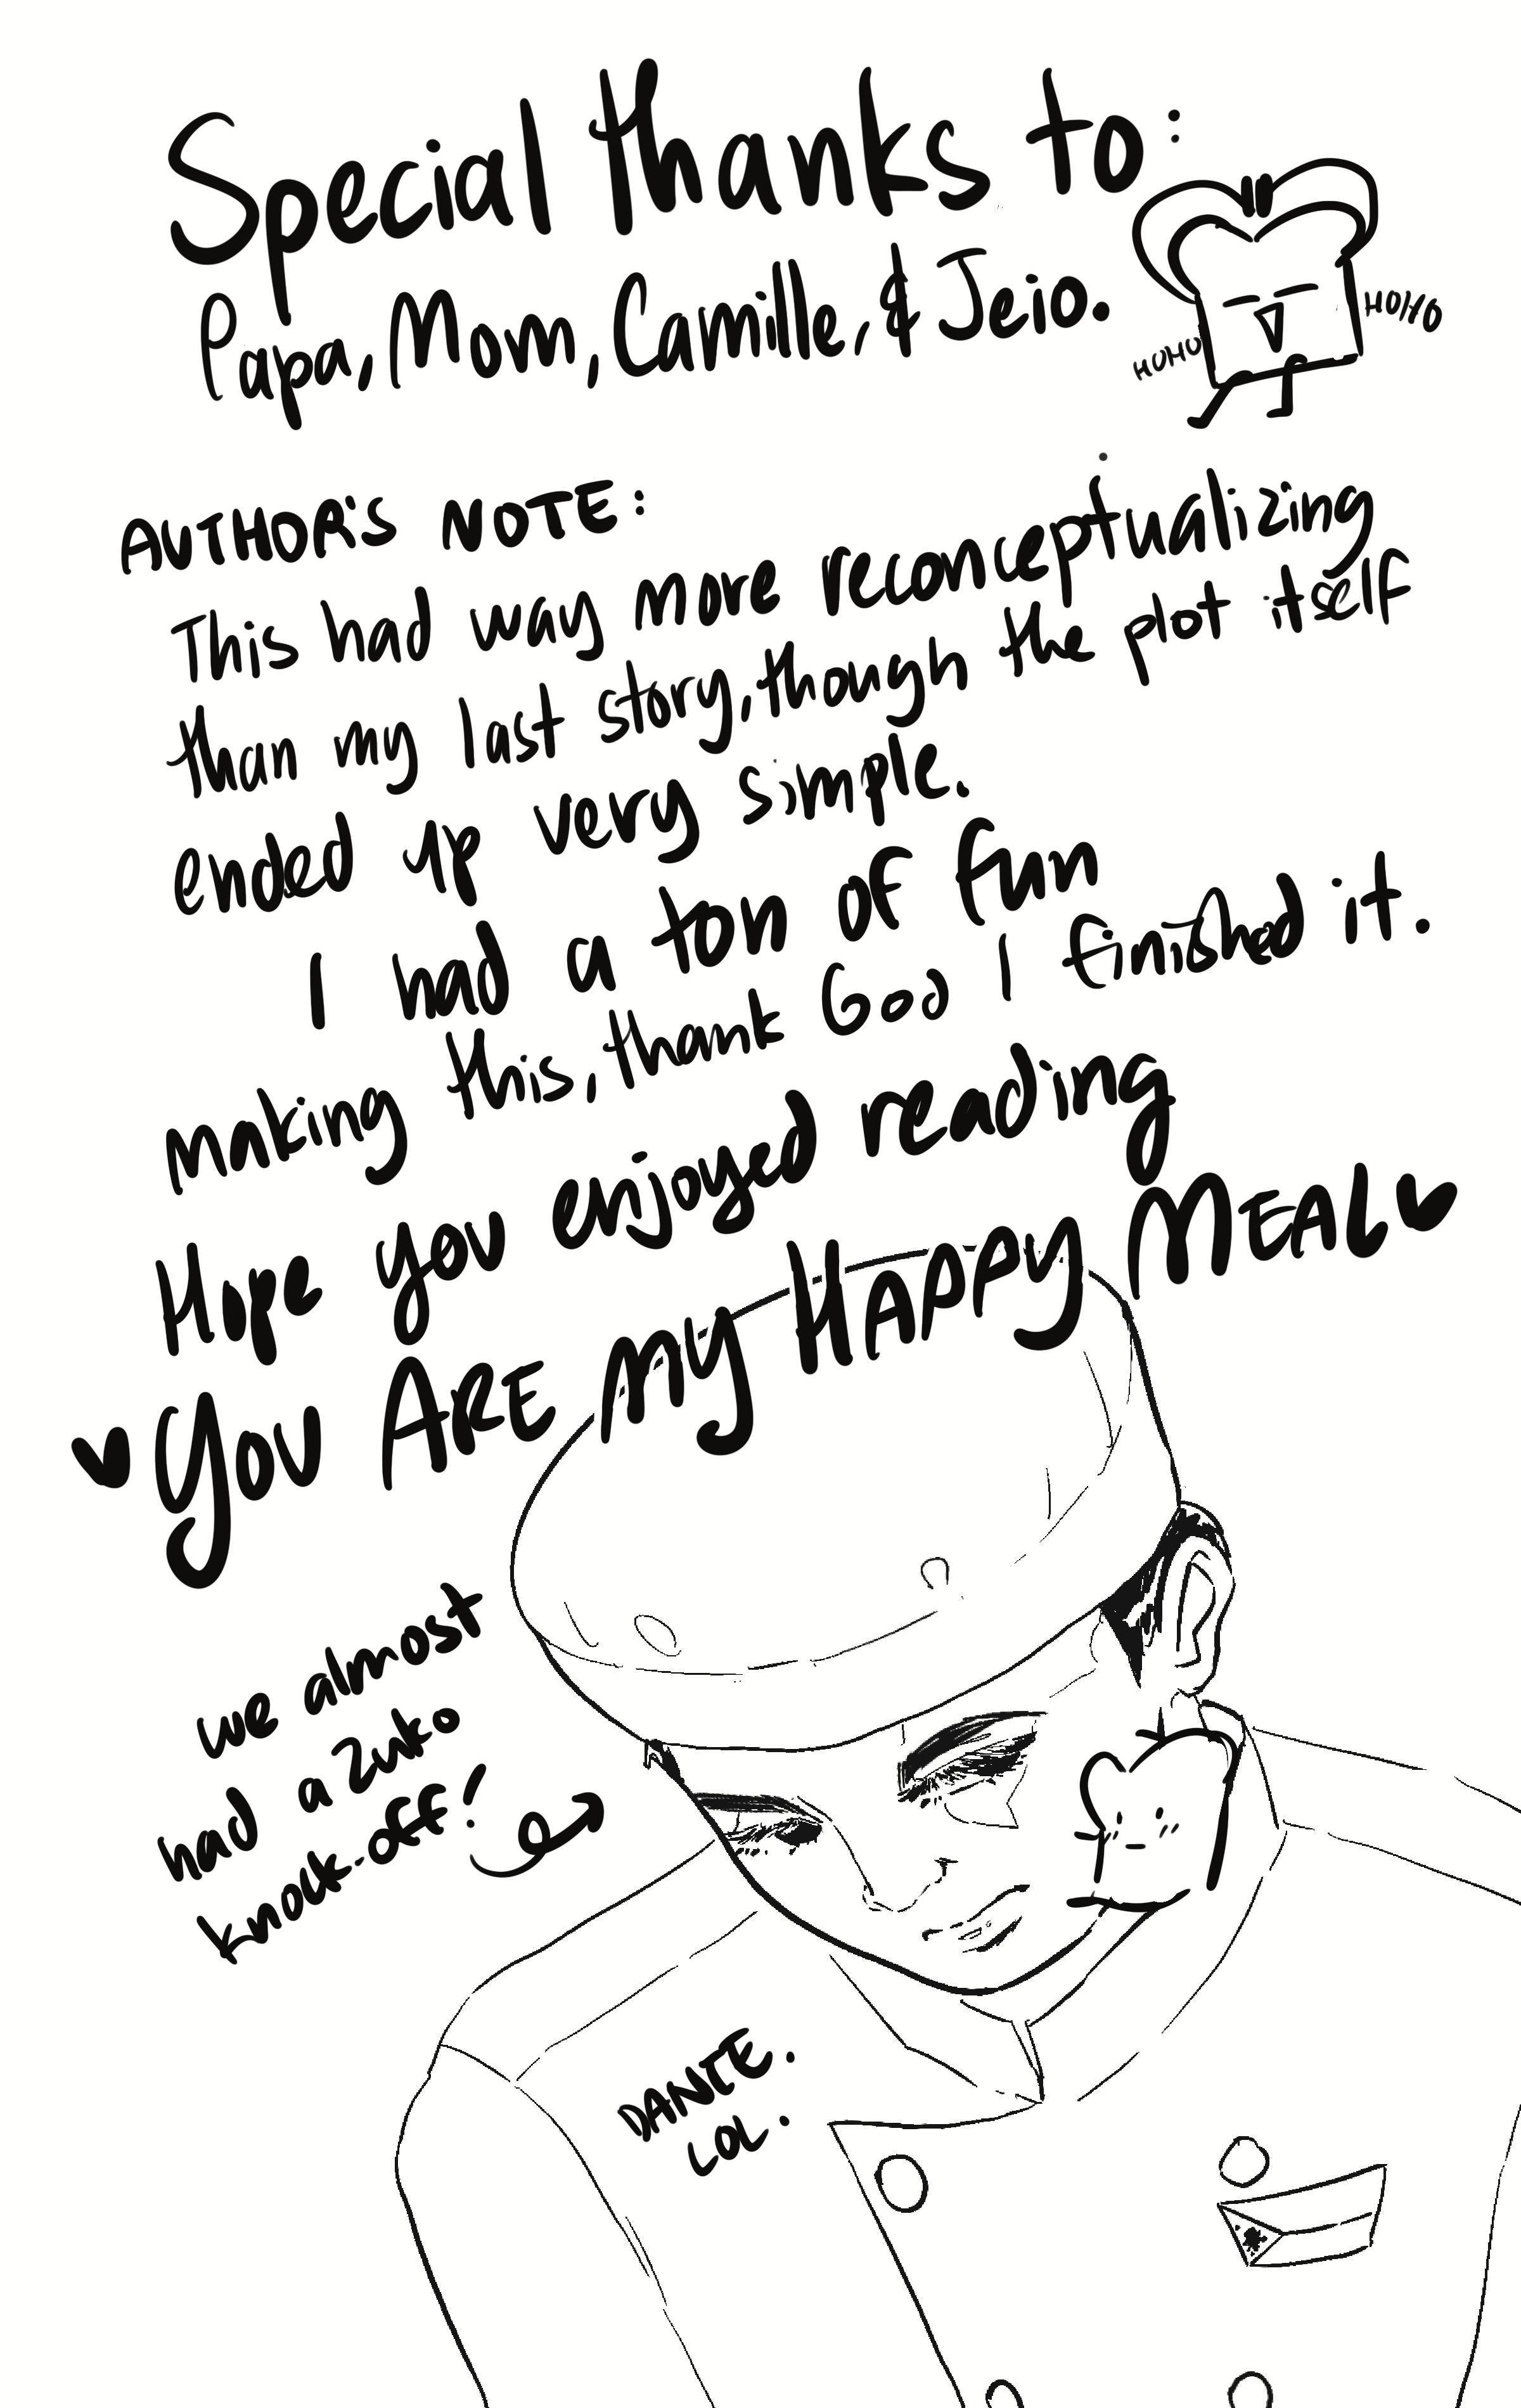 Special thanks to:
Papa, Mom, Camille, & Jeio.
HUHU
HOHO
AUTHOR'S NOTE:
This had way more reconceptualizing
than my last story, though the plot itself
ended up very simple.
I had a ton of fun
making this, thank God I finished it.
Hope you enjoyed reading
♥ YOU ARE MY HAPPY MEAL ♥
we almost
had a Zuko
knock-off!
DANTE.
LOL.